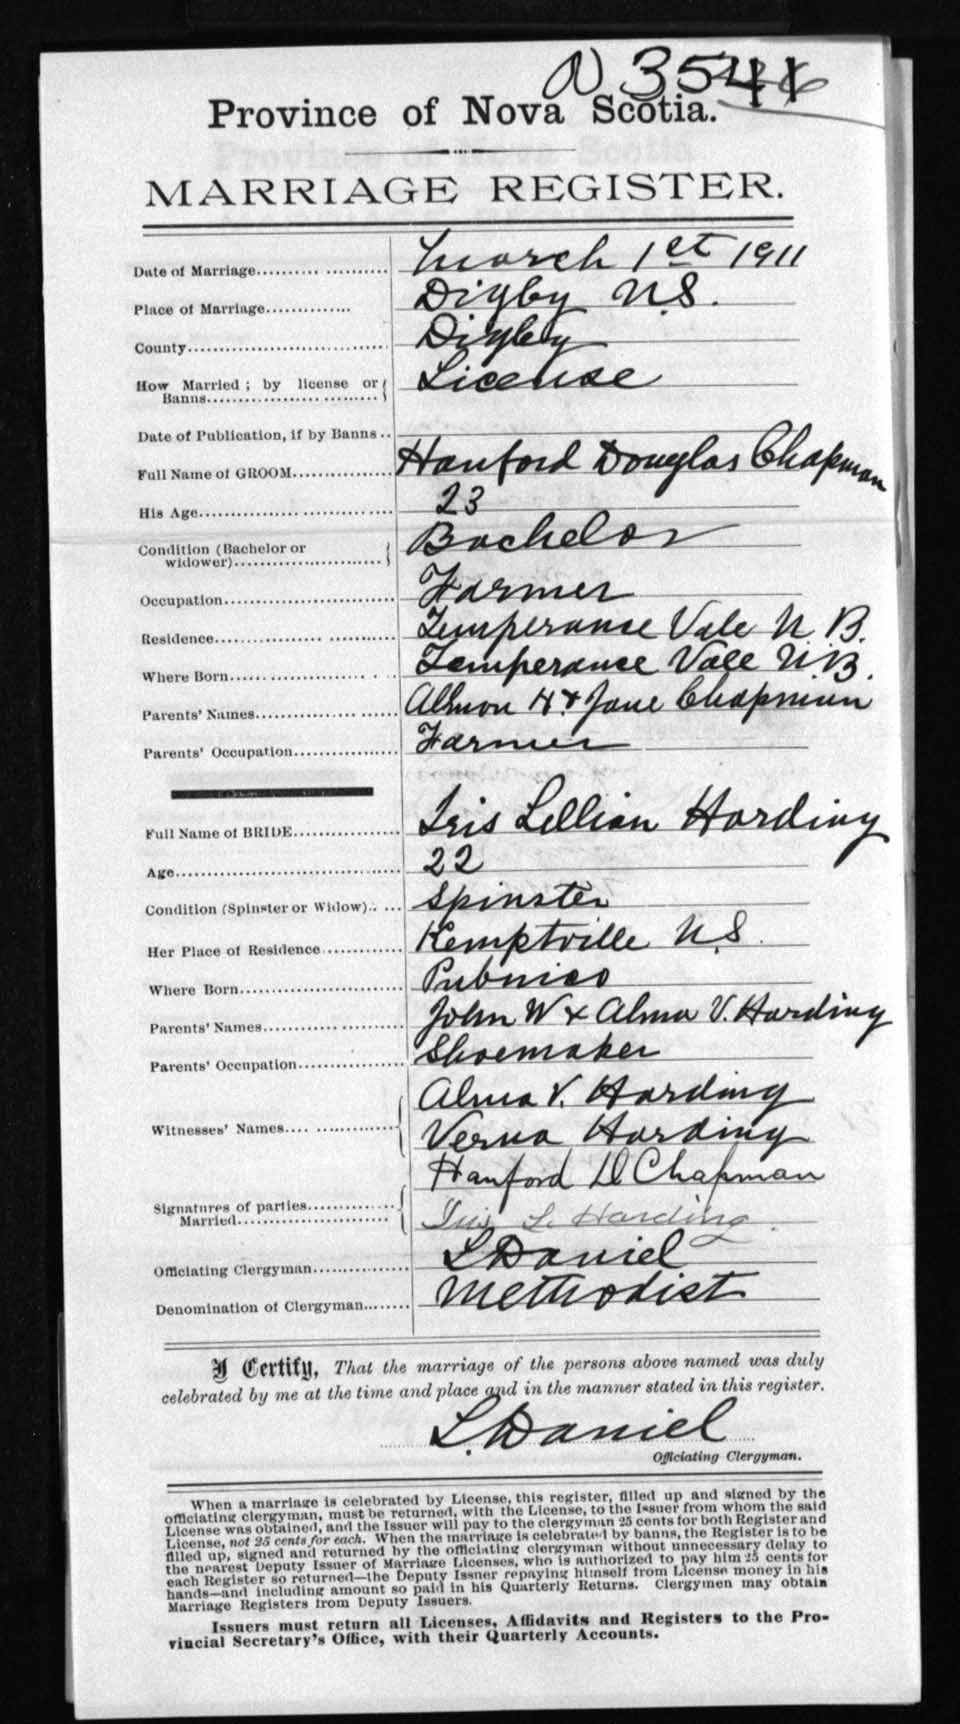 N 3541
Province of Nova Scotia.
MARRIAGE REGISTER.
Date of Marriage.......... March 1st 1911
Place of Marriage.......... Digby N.S.
County.......... Digby
How Married ; by license or Banns.......... License
Date of Publication, if by Banns ..
Full Name of GROOM.......... Hanford Douglas Chapman
His Age.......... 23
Condition (Bachelor or widower).......... Bachelor
Occupation.......... Farmer
Residence.......... Temperance Vale N B.
Where Born.......... Temperance Vale N.B.
Parents' Names.......... Almon H & Jane Chapman
Parents' Occupation.......... Farmer
Full Name of BRIDE.......... Iris Lillian Harding
Age.......... 22
Condition (Spinster or Widow).. ... Spinster
Her Place of Residence.......... Kemptville N.S.
Where Born.......... Pubnico
Parents' Names.......... John W & Alma V. Harding
Parents' Occupation.......... Shoemaker
Witnesses' Names.......... Alma V. Harding
Verna Harding
Signatures of parties Married.......... Hanford D Chapman
Iris L. Harding.
Officiating Clergyman.......... L Daniel
Denomination of Clergyman........ Methodist
I Certify, That the marriage of the persons above named was duly
celebrated by me at the time and place and in the manner stated in this register.
L. Daniel
Officiating Clergyman.
When a marriage is celebrated by License, this register, filled up and signed by the
officiating clergyman, must be returned, with the License, to the Issuer from whom the said
License was obtained, and the Issuer will pay to the clergyman 25 cents for both Register and
License, not 25 cents for each. When the marriage is celebrated by banns, the Register is to be
filled up, signed and returned by the officiating clergyman without unnecessary delay to
the nearest Deputy Issuer of Marriage Licenses, who is authorized to pay him 25 cents for
each Register so returned—the Deputy Issuer repaying himself from License money in his
hands—and including amount so paid in his Quarterly Returns. Clergymen may obtain
Marriage Registers from Deputy Issuers.
Issuers must return all Licenses, Affidavits and Registers to the Pro-
vincial Secretary's Office, with their Quarterly Accounts.